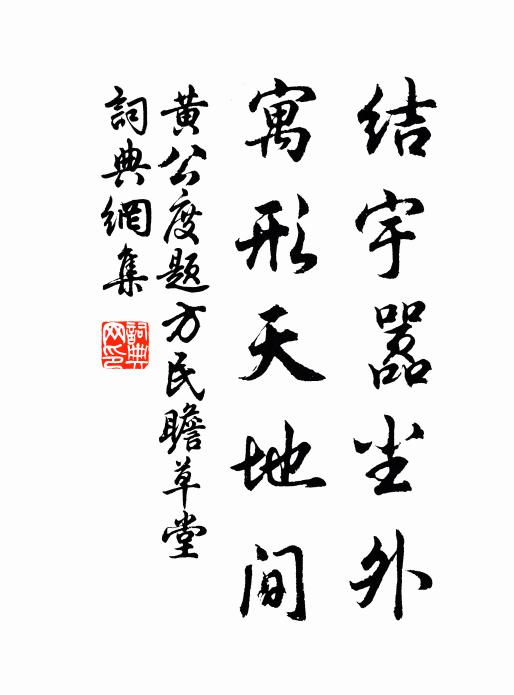 结宇嚣尘外
寓形天地间
黄公度题方民瞻草堂
詞典網集
詞典网印